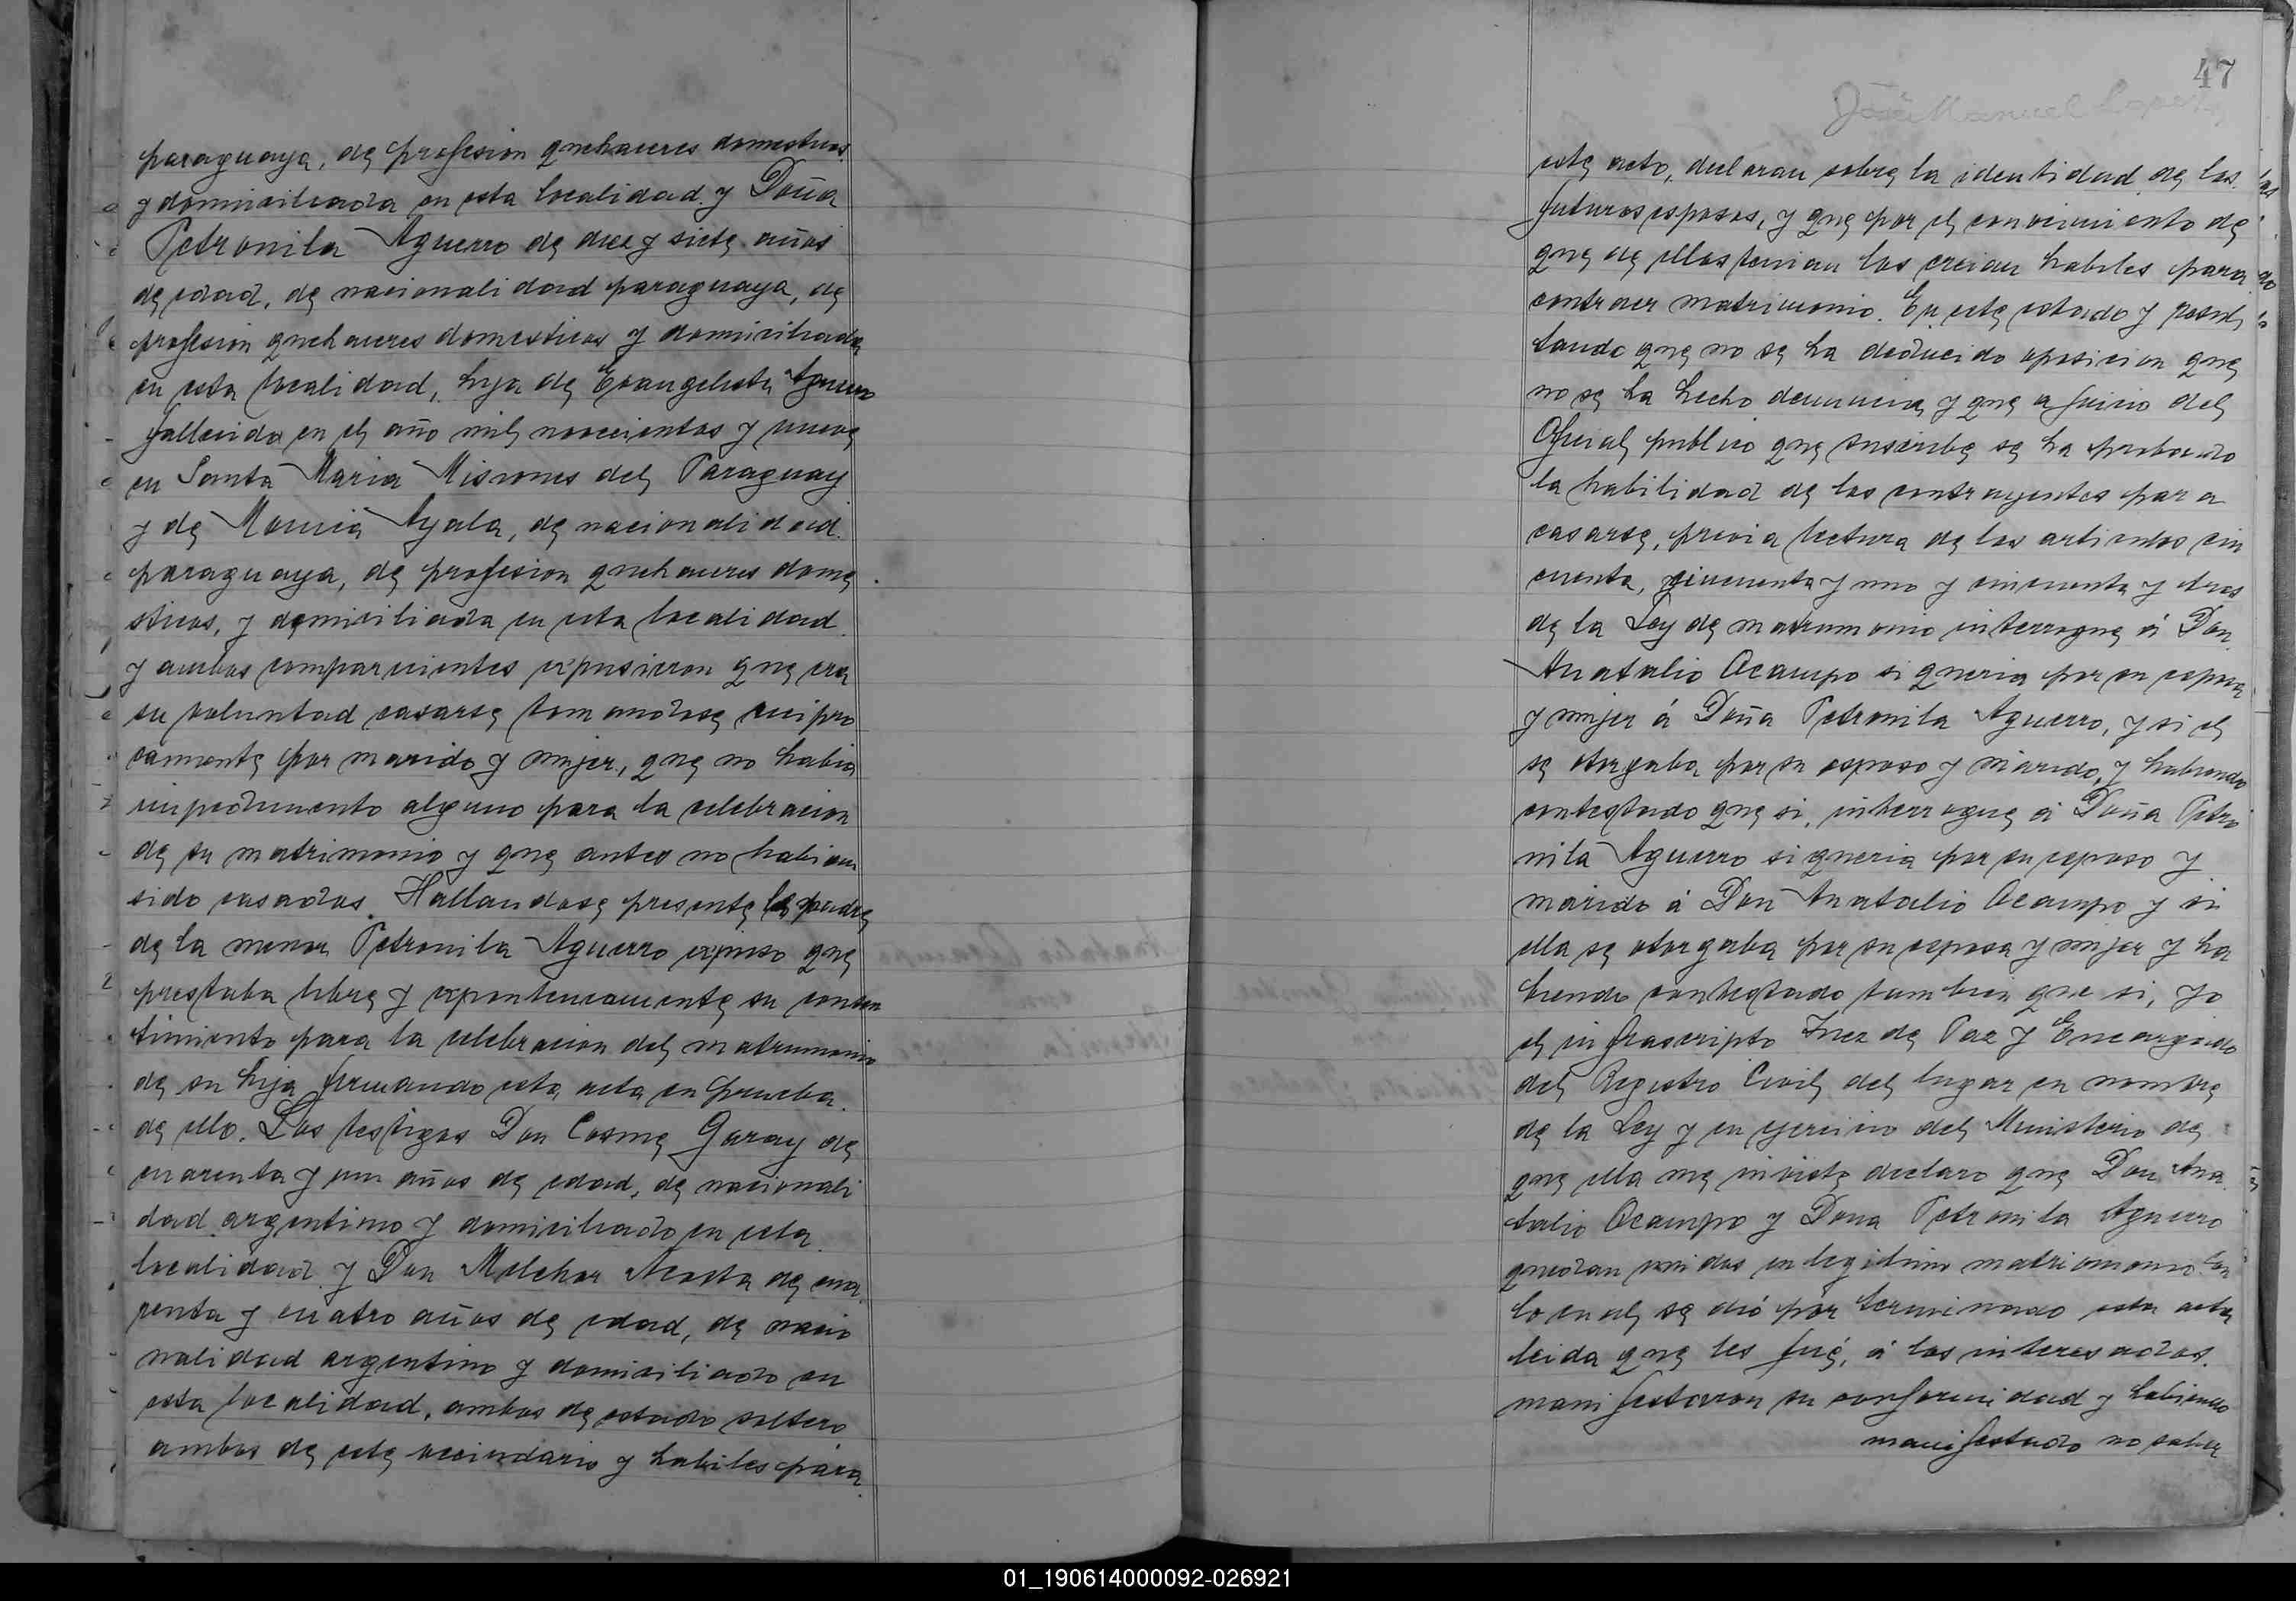 paraguaya, de profesion quehaceres domesticos
y domiciliada en esta localidad y Doña
Petronila Aguerro de diez y siete años
de edad, de nacionalidad paraguaya, de
profesion quehaceres domesticos y domiciliada
en esta localidad, hija de Evangelista Aguerro
fallecido en el año mil novecientos y nueve
en Santa Maria Misiones del Paraguay
y de Ayala, de nacionalidad
paraguaya, de profesion quehaceres dome
sticos, y domiciliada en esta localidad
y ambos comparecientes expusieron que era
su voluntad casarse tomandose recipro
camente por marido y mujer, que no habia
impedimento alguno para la celebracion
de su matrimonio y que antes no habian
sido casados. Hallandose presente la padre
de la menor Petronila Aguerro expuso que
prestaba libre y expontaneamente su consen
timiento para la celebracion del matrimonio
de su hija firmando esta acta en prueba
de ello. Los testigos Don Cosme Garay de
cuarenta y un años de edad, de nacionali
dad argentino y domiciliado en esta
localidad y Don Melchor Acosta de cua
renta y cuatro años de edad, de nacio
nalidad argentino y domiciliado en
esta localidad, ambos de estado soltero
ambos de este vecindario y habiles para
47
José Manuel Lopez
este acto, declaran sobre la identidad de los
futuros esposos, y que por el conocimiento de
que de ellos tenian los creian habiles para
contraer matrimonio. En este estado y resul
tando que no se ha deducido oposicion que
no se ha hecho denuncia y que a juicio del
Oficial publico que suscribe se ha probado
la habilidad de los contrayentes para
casarse, previa lectura de los articulos cin
cuenta, cincuenta y uno y cincuenta y tres
de la Ley de matrimonio interrogue á Don
Anatalio Ocampo si queria por su esposa
y mujer á Doña Petronila Aguerro, y si el
se otorgaba por su esposo y marido, y habiendo
contestado que si, interrogue á Doña Petro
nila Aguerro si queria por su esposo y
marido á Don Anatalio Ocampo y si
ella se otorgaba por su esposa y mujer y ha
biendo contestado tambien que si, yo
el infrascripto Juez de Paz y Encargado
del Registro Civil del lugar en nombre
de la Ley y en ejercicio del Ministerio de
que ella me inviste declaro que Don Ana
talio Ocampo y Dona Petronila Aguerro
quedan unidos en legitimo matrimonio. Con
lo cual se dió por terminado esta acta
leida que les fué, á los interesados
manifestaron su conformidad y habiendo
manifestado no saber
01_190614000092-026921